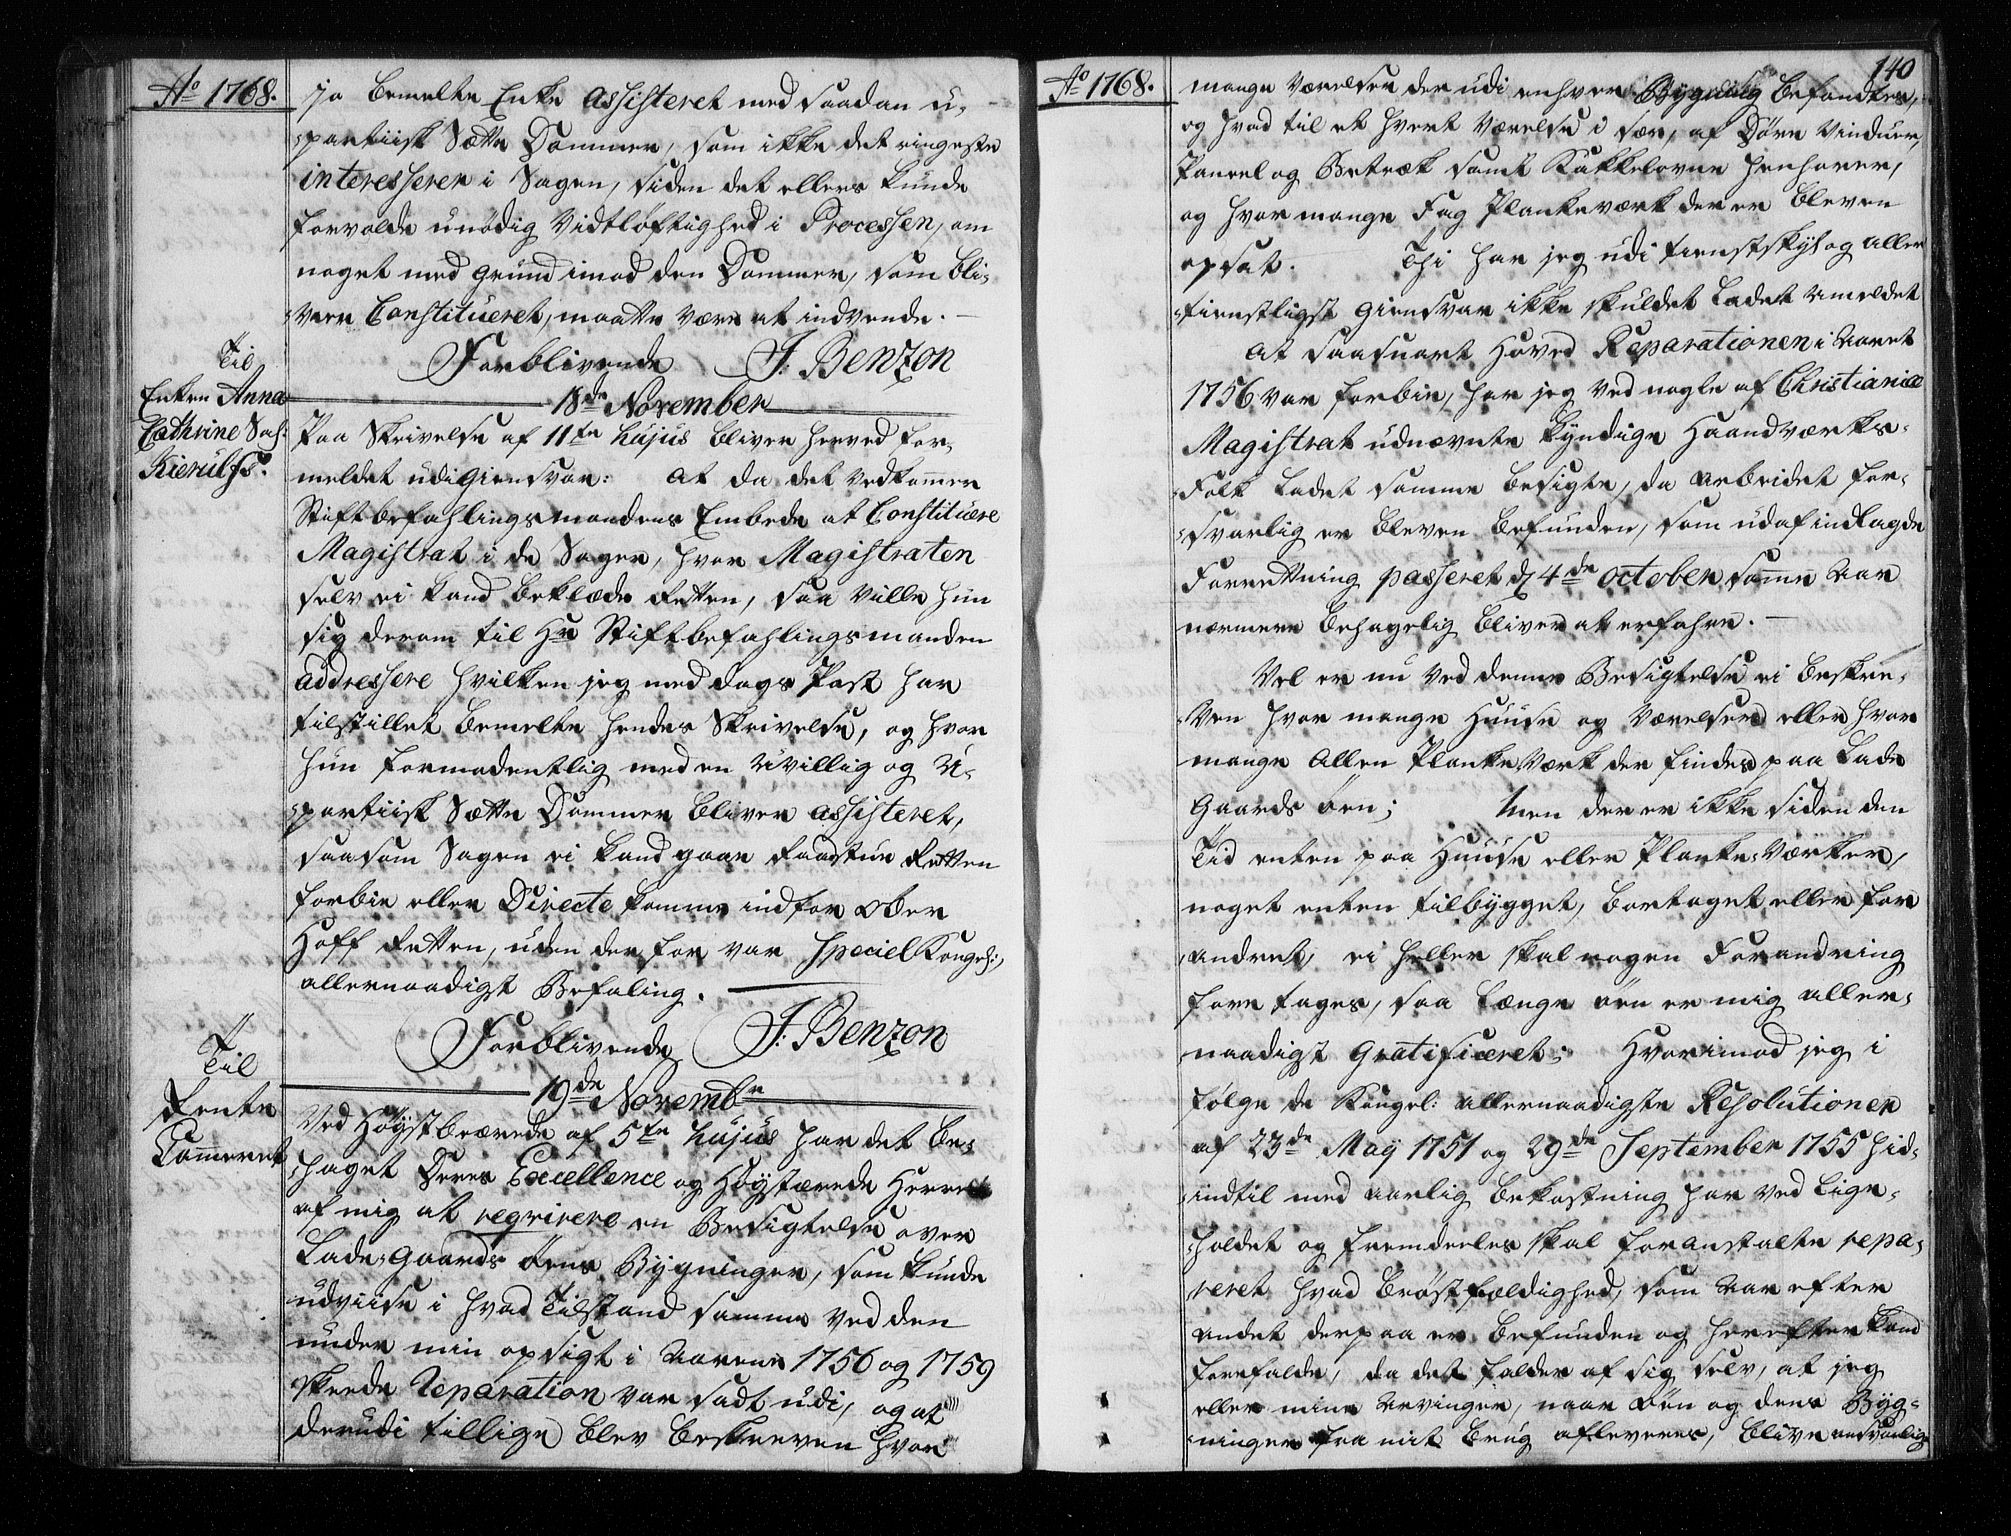 Ao 1768.
ja bemelte Enke assisteret med saadan u-
-partiisk Sætte Dommer, som ikke det ringeste
interesserer i Sagen, siden det ellers kunde
forvolde unødig Vidtløftighed i Processen, om
noget med Grund imod den Dommer, som bli-
-ver Constitueret, maatte være at indvende.
Forblivende J: Benzon
Til
Enken Anna
Cathrine Sal:
Kierulfs.
18de November
Paa Skrivelse af 11te hujus bliver herved for-
meldet udi Giensvar: At da det vedkommer
Stiftbefahlingsmandens Embede at Constituere
Magistrat i de Sager, hvor Magistraten
selv ei kand beklæde Retten, saa ville hun
sig derom til Hr Stiftbefahlingsmanden
addressere hvilken jeg med dags Post har
tilstillet bemelte hendes Skrivelse, og hvor
hun formodentlig med en Uvillig og U-
-partiisk Sætte Dommer bliver assisteret,
saasom Sagen ei kand gaae Raadstue Retten
forbie eller Directe komme ind for Ober
Hoff Retten, uden derfor var special Kongel:
allernaadigst Befaling.
Forblivende J: Benzon
Til
Rente
Cammeret
19de Novembr
Ved Høystbeærede af 5te hujus har det be-
-haget Deres Excellence og Høystærede Herrer
af mig at reqvirere en Besigtelse over
Lade-Gaards Øens Bygninger, som kunde
udviise i hvad Tilstand samme ved den
under min opsigt i Aarene 1756 og 1759
skeede Reparation var sadt udi, og at
derudi tillige blev beskreven hvor
Ao 1768.
140
mange Værelser der udi enhver Bygning befandtes,
og hvad til et hvert Værelse i sær, af Døre Vinduer,
Paneel og Betræk samt Kakkelovne henhører,
og hvor mange Fag Plankeværk der er bleven
opsat. Thi har jeg udi tienstskyl og aller
-tienstligst Giensvar ikke skuldet ladet Umeldet
At saasnart Hoved Reparationen i Aaret
1756 var forbie, har jeg ved nogle af Christianiæ
Magistrat udnævnte kyndige Haandværks-
-Folk ladet samme besigte, da Arbeidet for-
-svarlig er bleven befunden, som udaf indlagde
Forretning passeret d 4de October samme Aar
nærmere behagelig bliver at erfahre.
Vel er nu ved denne Besigtelse ei beskre-
-ven hvor mange Huuse og Værelser eller hvor
mange Allen Planke Værk der findes paa Lade
Gaards øen; Men der er ikke siden den
Tid enten paa Huuse eller Planke-Værker,
noget enten tilbygget, bortaget eller for
-andret, ei heller skal nogen Forandring
foretages, saa længe øen er mig aller-
naadigst Gratificeret; Hvorimod jeg i
følge de Kongel: allernaadigste Resolutioner
af 23de May 1751 og 29de September 1755 hid-
-indtil med aarlig bekostning har ved lige-
-holdet og fremdeeles skal foranstalte repa-
reret hvad brøstfældighed, som Aar efter
andet derpaa er befunden og herefter kand
forefalde, da det falder af sig selv, at jeg
eller mine Arvinger, naar Øen og dens Byg-
-ninger fra mit brug afleveres, blive ansvarlig